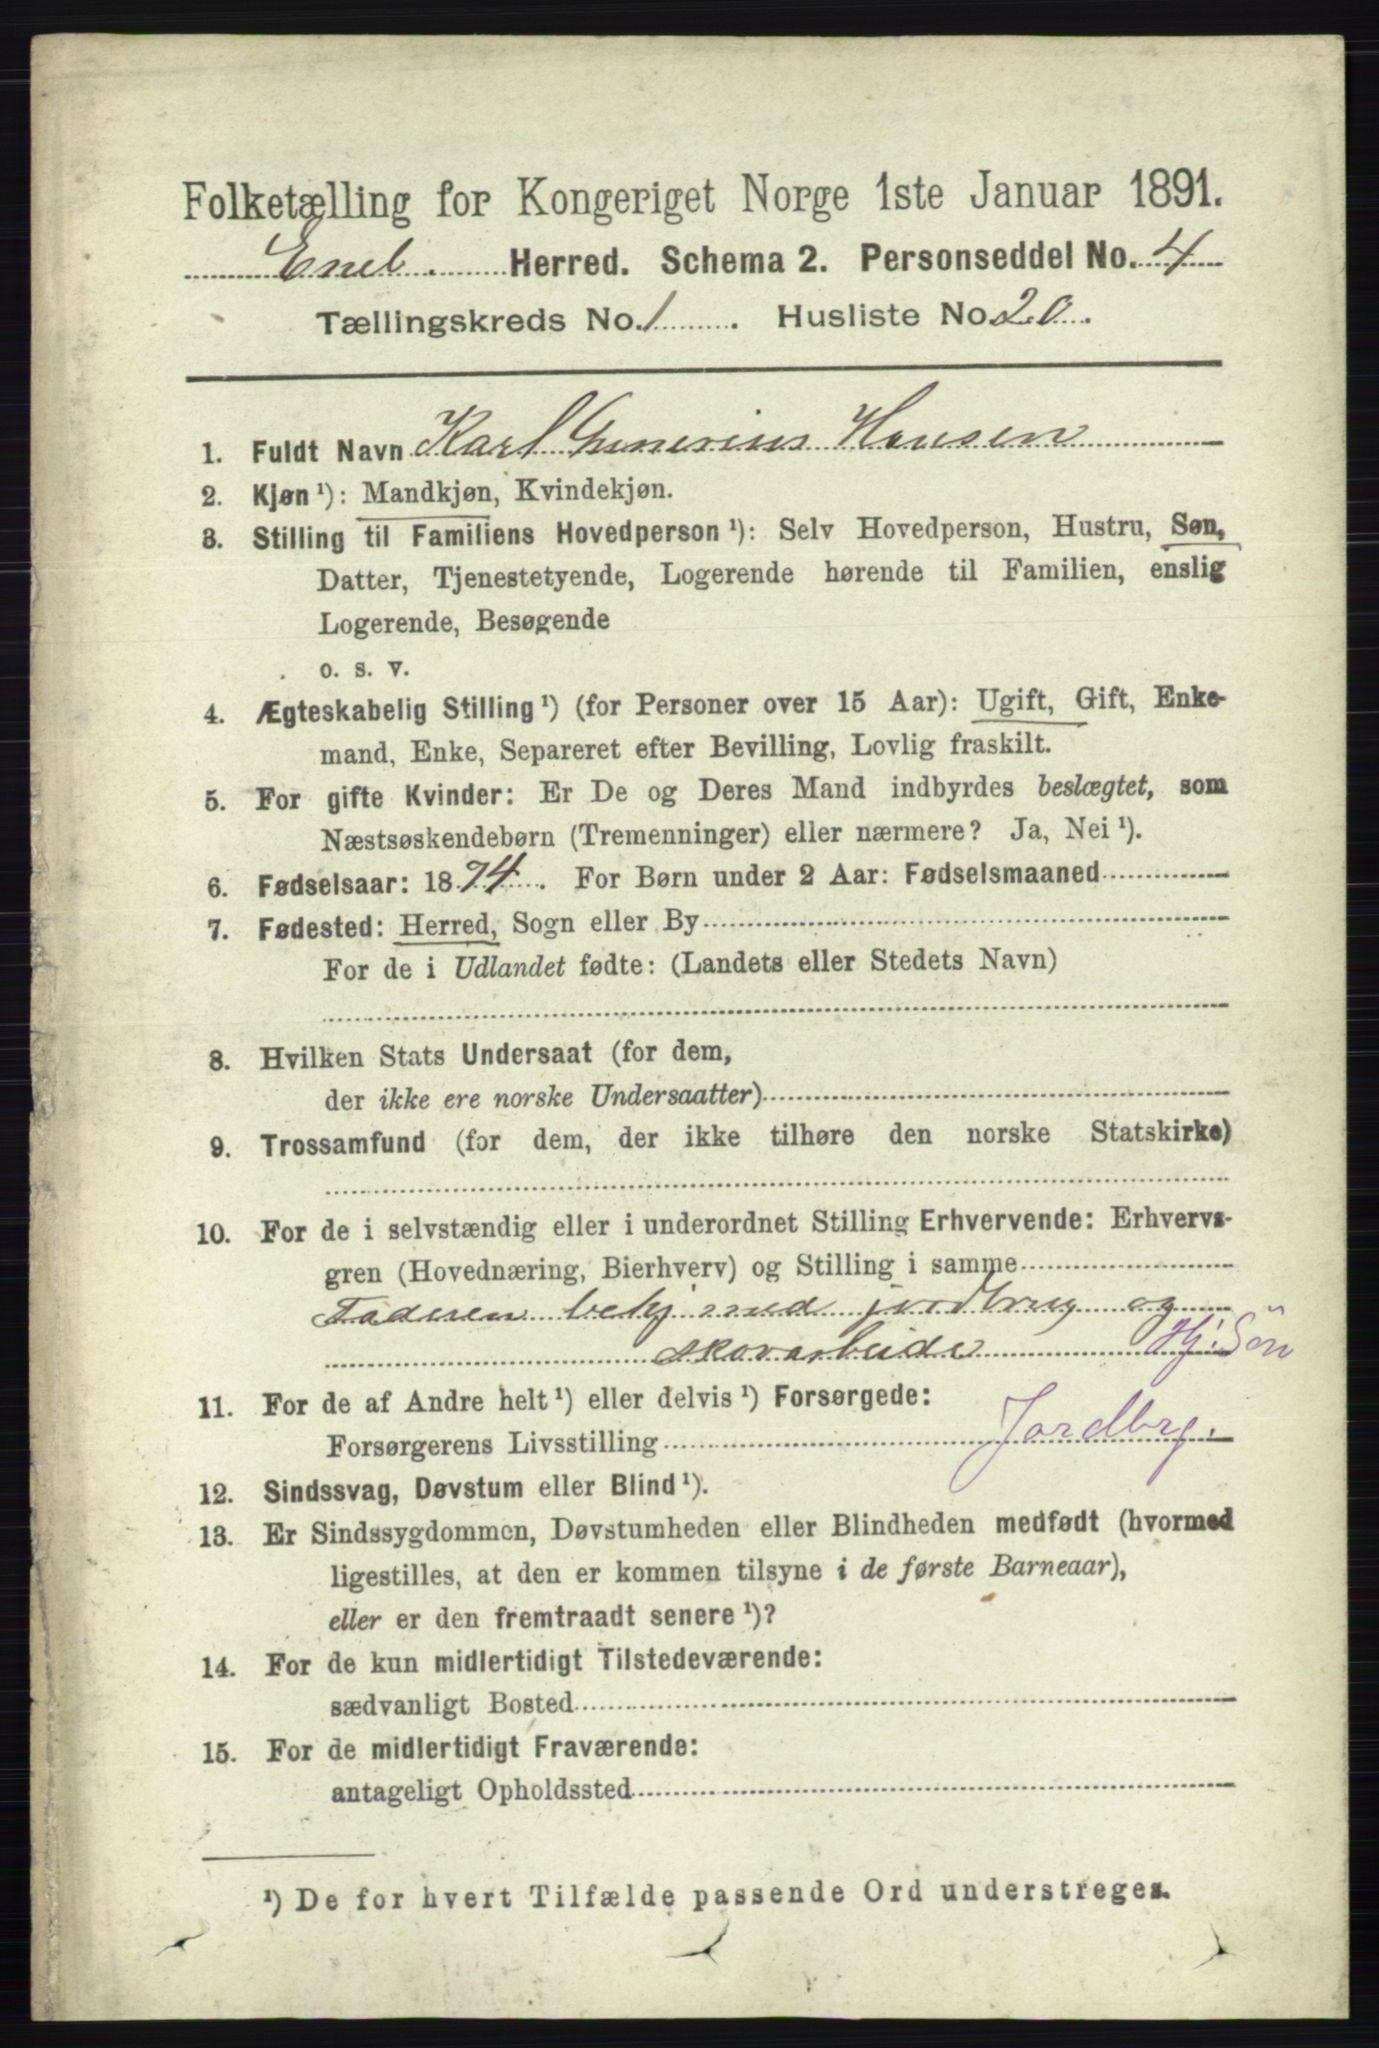 Folketælling for Kongeriget Norge 1ste Januar 1891.
Eneb. Herred. Schema 2. Personseddel No. 4
Tællingskreds No. 1. Husliste No 20.
1. Fuldt Navn Karl Gunerius Hansen
2. Kjøn ¹): Mandkjøn, Kvindekjøn.
3. Stilling til Familiens Hovedperson ¹): Selv Hovedperson, Hustru, Søn,
Datter, Tjenestetyende, Logerende hørende til Familien, enslig
Logerende, Besøgende
o. s. v.
4. Ægteskabelig Stilling ¹) (for Personer over 15 Aar): Ugift, Gift, Enke-
mand, Enke, Separeret efter Bevilling, Lovlig fraskilt.
5. For gifte Kvinder: Er De og Deres Mand indbyrdes beslægtet, som
Næstsøskendebørn (Tremenninger) eller nærmere? Ja, Nei ¹).
6. Fødselsaar: 1874. For Børn under 2 Aar: Fødselsmaaned
7. Fødested: Herred, Sogn eller By
For de i Udlandet fødte: (Landets eller Stedets Navn)
8. Hvilken Stats Undersaat (for dem,
der ikke ere norske Undersaatter)
9. Trossamfund (for dem, der ikke tilhøre den norske Statskirke)
10. For de i selvstændig eller i underordnet Stilling Erhvervende: Erhvervs-
gren (Hovednæring, Bierhverv) og Stilling i samme
Faderen behj med jordbrug og
skovarbeide Hj. Søn
11. For de af Andre helt ¹) eller delvis ¹) Forsørgede:
Forsørgerens Livsstilling Jordbrg.
12. Sindssvag, Døvstum eller Blind ¹).
13. Er Sindssygdommen, Døvstumheden eller Blindheden medfødt (hvormed
ligestilles, at den er kommen tilsyne i de første Barneaar),
eller er den fremtraadt senere ¹)?
14. For de kun midlertidigt Tilstedeværende:
sædvanligt Bosted
15. For de midlertidigt Fraværende:
antageligt Opholdssted
¹) De for hvert Tilfælde passende Ord understreges.